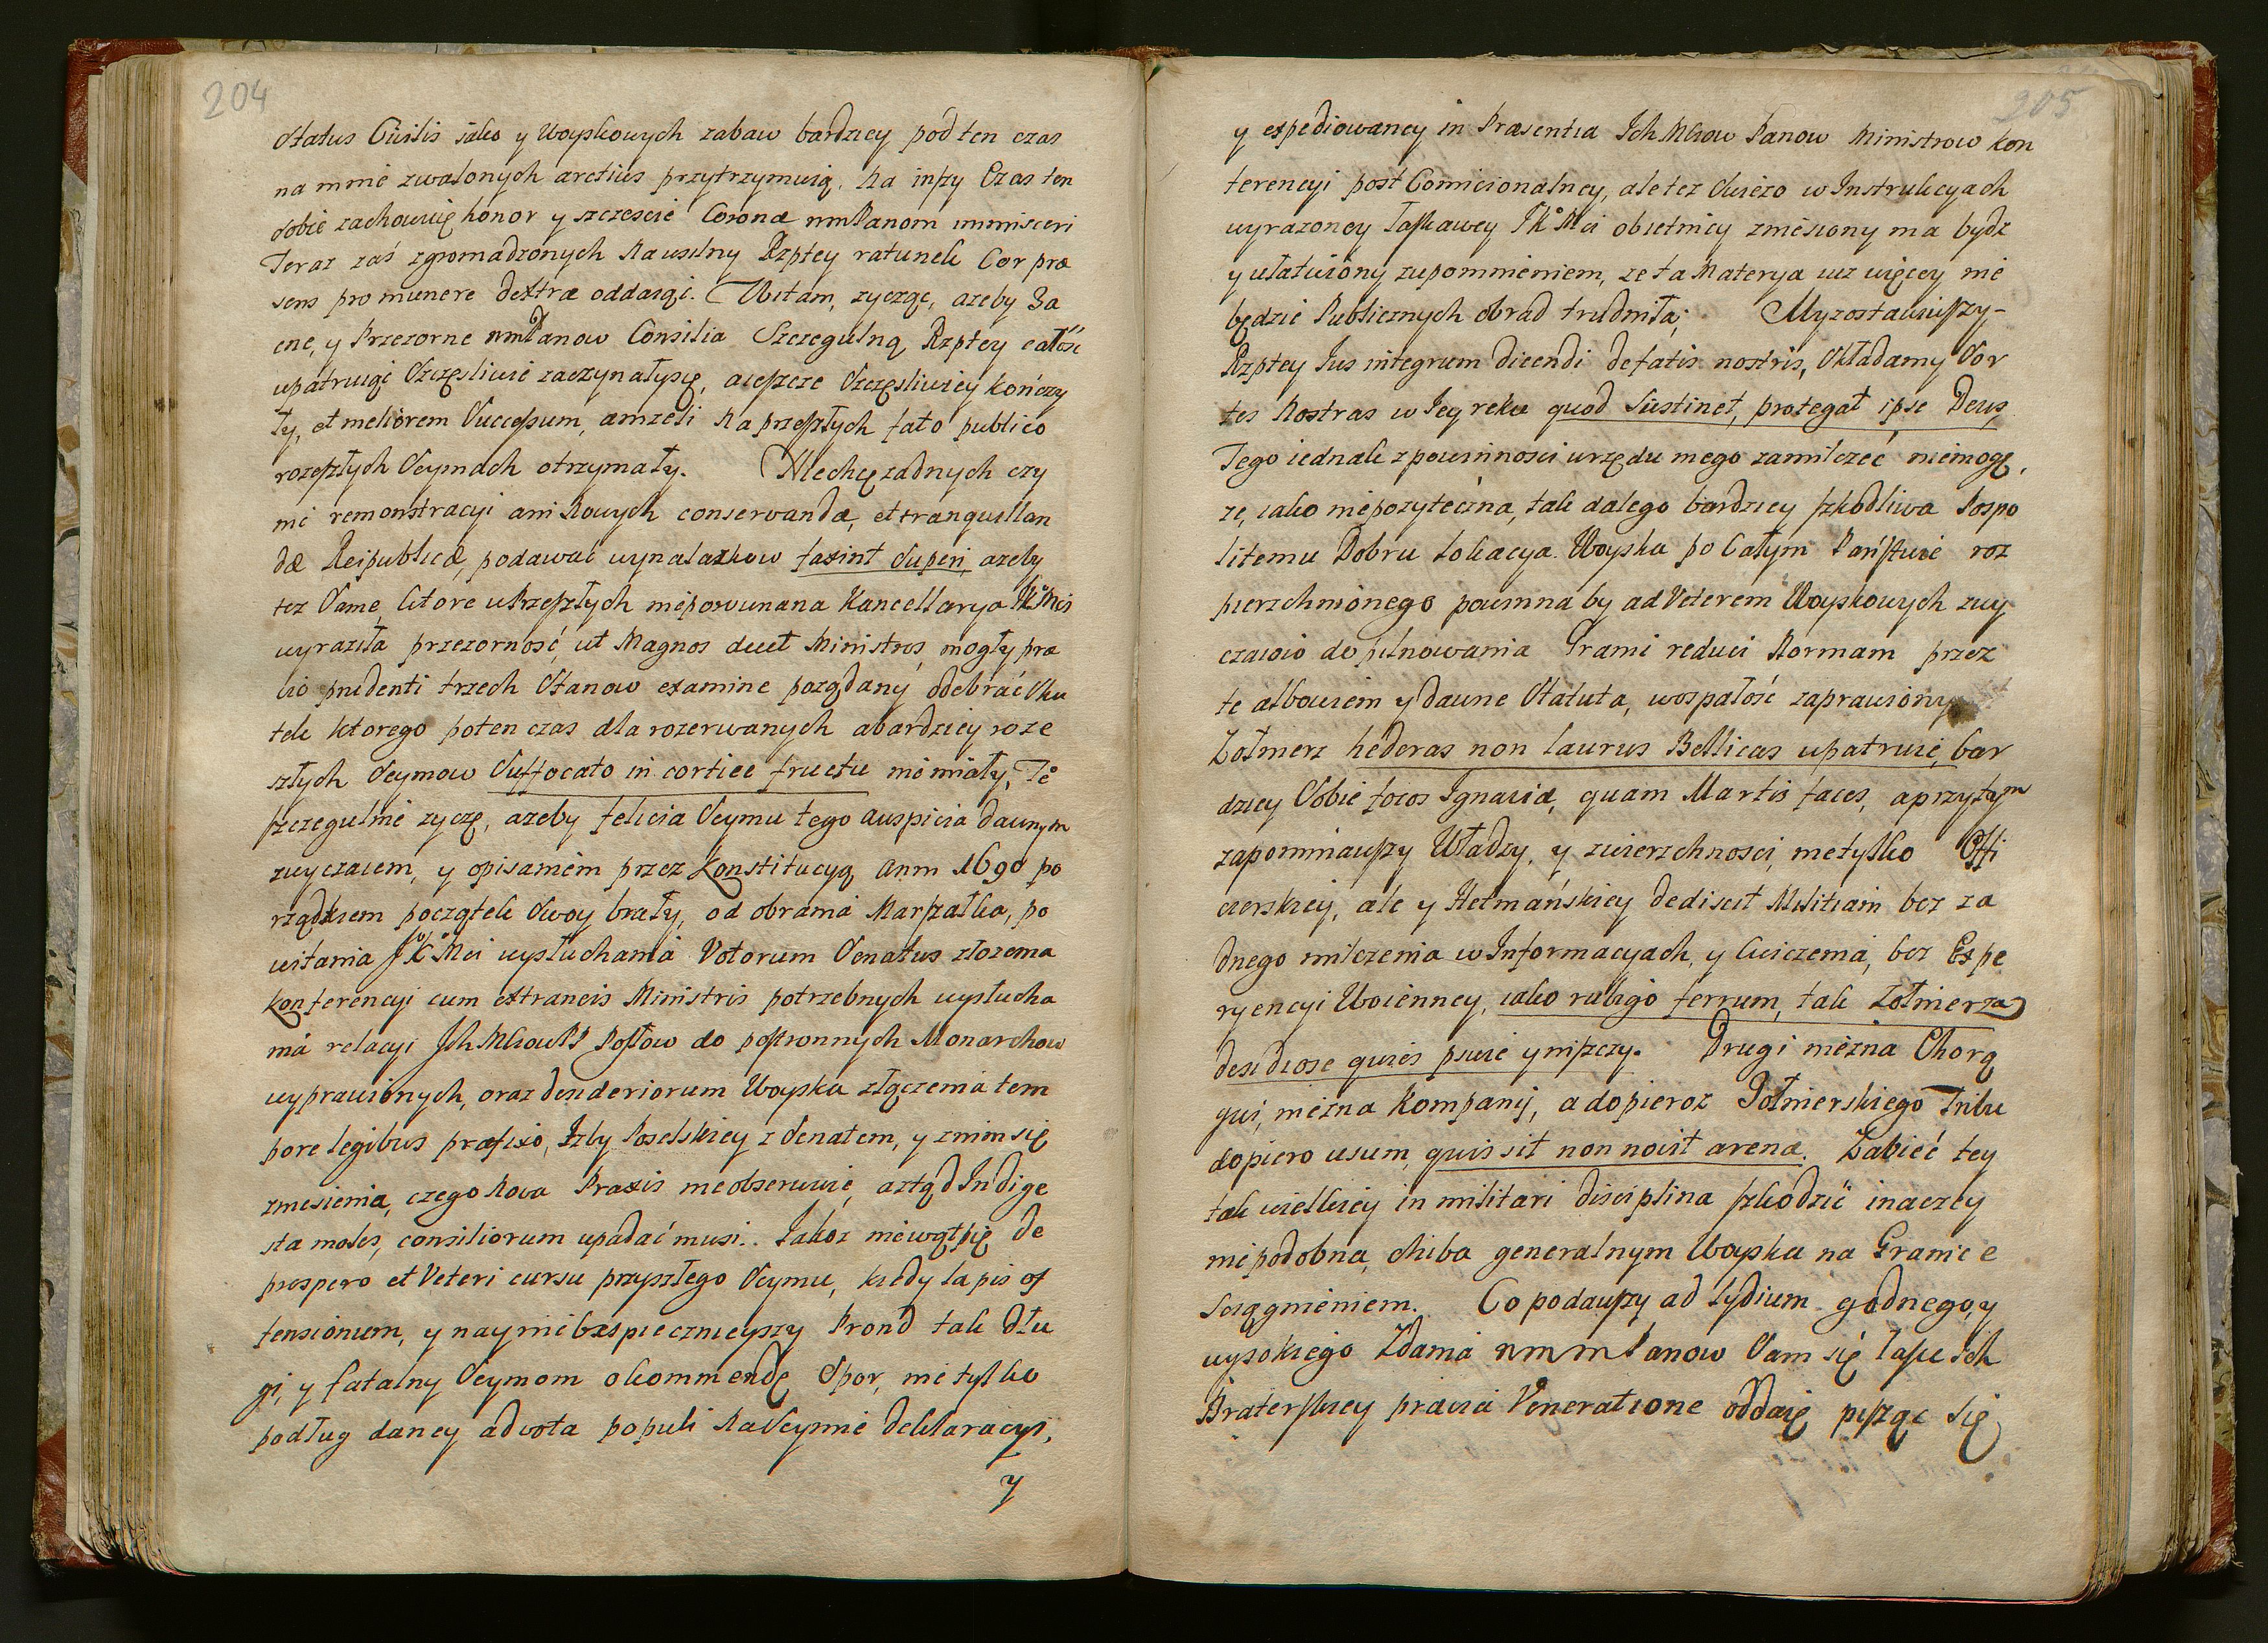 204
Status Civilis jako y Woyskowych zabaw bardziey pod ten czas
na mnie zwalonych arctius przytrzymuią. Na inszy Czas ten
sobie zachowuię honor y szczescie Coronæ wmPanom immisceri
Teraz zaś zgromadzonych na usilny Rzptey ratunek Cor præ
sens pro munere dextræ oddaiąc. Witam, zycząc, azeby Za
cne, y Przezorne wmPanow Consilia Szczegulną Rzptey całość
upatruiąc Szczęsliwie zaczynałysię, aieszcze Szczęsliwiey kończy
ły, et meliorem Successum, anizeli na przeszłych fato publico
rozeszłych Seymach otrzymały. Niechcę zadnych czy
nić remonstracyi ani nowych conservandæ, et tranquillan
dæ Reipublicæ, podawać wynalazkow faxint Superi, azeby
tez Same, ktore w Przeszłych nieporownana Kancellarya JKMci
wyraziła przezorność, ut Magnos decet Ministros, mogły præ
vio prudenti trzech Stanow examine pożądany odebrać Sku
tek ktorego poten czas dla rozerwanych abardziey roze
szłych Seymow Suffocato in cortice fructu niemiały, Te
szczegulnie zyczę, azeby felicia Seymu tego auspicia dawnym
zwyczaiem, y opisaniem przez Konstitucyą Anni 1690 po
rządkiem początek Swoy brały, od obrania Marszałka, po
witania JKMci wysłuchania Votorum Senatus złozenia
konferencyi cum extraneis Ministris potrzebnych wysłucha
nia relacyi Jch MciowPP Posłow do postronnych Monarchow
wyprawionych, oraz desideriorum Woyska złączenia tem
pore legibus præfixo, Izby Poselskiey z Senatem, y znim się
zniesienia, czego Nova Praxis nieobserwuie, aztąd Indige
sta moles, consiliorum upadać musi. Jakoz niewątpię de
prospero et Veteri cursu przyszłego Seymu, kiedy lapis of
fensionum, y nayniebezpiecznieyszy Prond tak dłu
gi, y fatalny Seymom okommendę Spor, nietylko
podług daney ad vota populi na Seymie deklaracyi,
y
205
y expediowaney in Præsentia Jch Mciow Panow Ministrow kon
ferencyi post Comicionalney, ale tez Swiezo w Instrukcyach
wyrazoney łaskawey JKMci obietnicy zniesiony ma bydz
y ułatwiony zupomnieniem, ze ta Materya iuz więcey nie
będzie Publicznych obrad trudniła; My zostawiwszy
Rzptey Ius integrum dicendi defatis nostris, Składamy Sor
tes Nostras w Jey ręku quod Sustinet, protegat ipse Deus
Tego iednak z powinnosci urzędu mego zamilczeć niemogę,
ze, iako niepozyteczna, tak dalego bardziey szkodliwa Pospo
litemu Dobru Lokacya Woyska po Całym Państwie roz
pierzchnionego powinna by ad Veterem Woyskowych zwy
czaiow do pilnowania Granic reduci Normam przez
te albowiem y dawne Statuta, wospałość zaprawiony
Zołnierz hederas non laurus Bellicas upatruie, bar
dziey Sobie focos Ignaviæ, quam Martis faces, aprzytym
zapomniawszy Władzy, y zwierzchnosci, nietylko Offi
cierskiey, ale y Hetmańskiey dediscit Militiam bez za
dnego milczenia w Informacyach, y ćwiczenia, bez Expe
ryencyi Woienney, iako rubigo ferrum, tak Zołnierza
desidiose quies psuie y niszczy. Drugi niezna Chorą
gwi, niezna Kompanij, a dopieroz Zołnierskiego Tribu
dopiero usum, quis sit non novit arenæ. Zabieć tey
tak wielkiey in militari disciplina szkodzie inaczey
niepodobna, chiba generalnym Woyska na Granice
Sciągnieniem. Co podawszy ad Lydium godnego, y
wysokiego Zdania wmmPanow Sam się łasce Ich
Braterskiey præcia Veneratione oddaię pisząc Się